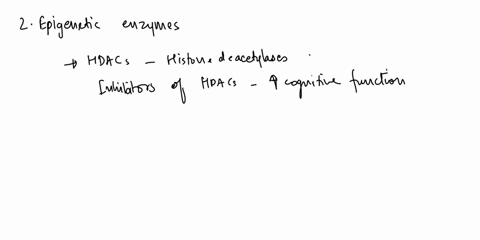 2. Epigenetic enzymes
→ HDACs - Histone deacetylases
Inhibitors of HDACs - ↑ cognitive function